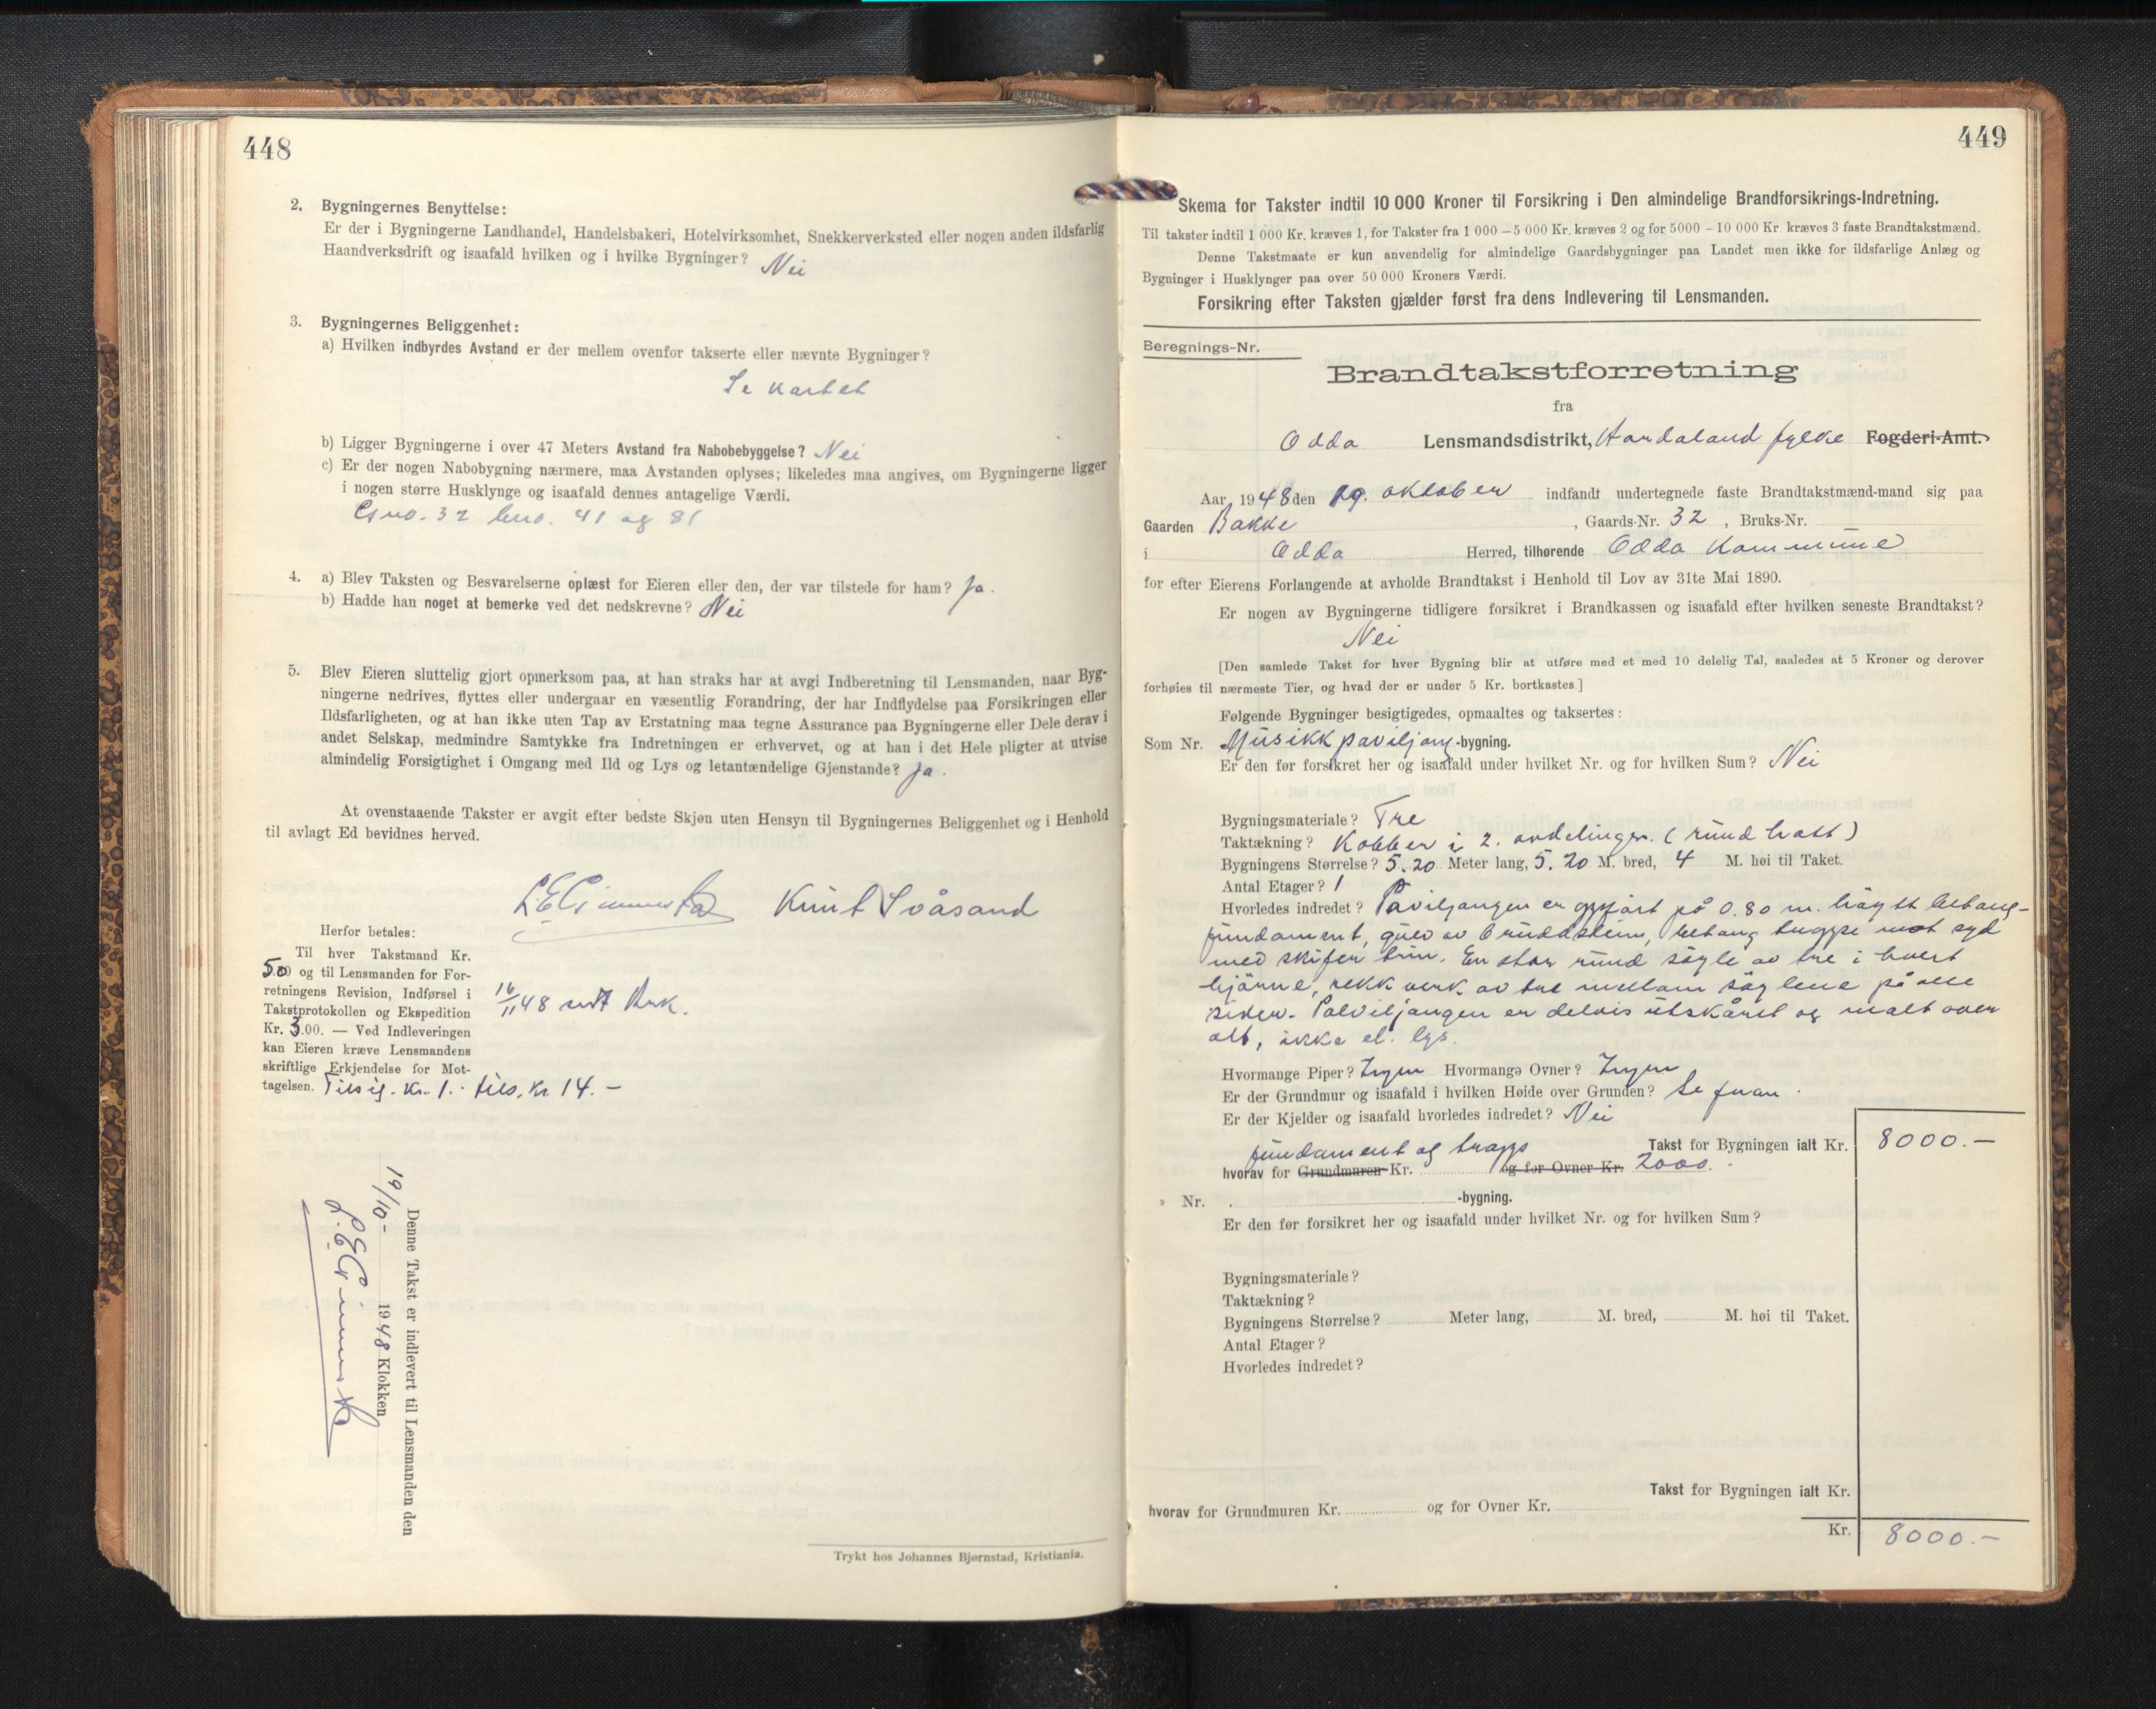 448
2. Bygningernes Benyttelse:
Er der i Bygningerne Landhandel, Handelsbakeri, Hotelvirksomhet, Snekkerverksted eller nogen anden ildsfarlig
Haandverksdrift og isaafald hvilken og i hvilke Bygninger? Nei
3. Bygningernes Beliggenhet:
a) Hvilken indbyrdes Avstand er der mellem ovenfor takserte eller nævnte Bygninger?
Se kartet
b) Ligger Bygningerne i over 47 Meters Avstand fra Nabobebyggelse? Nei
c) Er der nogen Nabobygning nærmere, maa Avstanden oplyses; likeledes maa angives, om Bygningerne ligger
i nogen større Husklynge og isaafald dennes antagelige Værdi.
Gno. 32 bno. 41 og 81
4. a) Blev Taksten og Besvarelserne oplæst for Eieren eller den, der var tilstede for ham? Ja.
b) Hadde han noget at bemerke ved det nedskrevne? Nei
5. Blev Eieren sluttelig gjort opmerksom paa, at han straks har at avgi Indberetning til Lensmanden, naar Byg-
ningerne nedrives, flyttes eller undergaar en væsentlig Forandring, der har Indflydelse paa Forsikringen eller
Ildsfarligheten, og at han ikke uten Tap av Erstatning maa tegne Assurance paa Bygningerne eller Dele derav i
andet Selskap, medmindre Samtykke fra Indretningen er erhvervet, og at han i det Hele pligter at utvise
almindelig Forsigtighet i Omgang med Ild og Lys og letantændelige Gjenstande? Ja.
At ovenstaaende Takster er avgit efter bedste Skjøn uten Hensyn til Bygningernes Beliggenhet og i Henhold
til avlagt Ed bevidnes herved.
Knut Svåsand
Herfor betales:
Til hver Takstmand Kr.
5.00 og til Lensmanden for For-
retningens Revision, Indførsel i
Takstprotokollen og Ekspedition
Kr. 3.00. — Ved Indleveringen
kan Eieren kræve Lensmandens
skriftlige Erkjendelse for Mot-
tagelsen. Tilsig. kr. 1.- tils. kr. 14.-
16/11 48 sendt
Denne Takst er indlevert til Lensmanden den
19/10- 1948 Klokken
Trykt hos Johannes Bjørnstad, Kristiania.
449
Skema for Takster indtil 10 000 Kroner til Forsikring i Den almindelige Brandforsikrings-Indretning.
Til takster indtil 1 000 Kr. kræves 1, for Takster fra 1 000 – 5 000 Kr. kræves 2 og for 5000 – 10 000 Kr. kræves 3 faste Brandtakstmænd.
Denne Takstmaate er kun anvendelig for almindelige Gaardsbygninger paa Landet men ikke for ildsfarlige Anlæg og
Bygninger i Husklynger paa over 50 000 Kroners Værdi.
Forsikring efter Taksten gjælder først fra dens Indlevering til Lensmanden.
Beregnings-Nr.
Brandtakstforretning
fra
Odda Lensmandsdistrikt, Hordaland fylke Fogderi-Amt.
Aar 1948 den 19. oktober indfandt undertegnede faste Brandtakstmænd-mand sig paa
Gaarden Bakke, Gaards-Nr. 32, Bruks-Nr. –
i Odda Herred, tilhørende Odda Kommune
for efter Eierens Forlangende at avholde Brandtakst i Henhold til Lov av 31te Mai 1890.
Er nogen av Bygningerne tidligere forsikret i Brandkassen og isaafald efter hvilken seneste Brandtakst?
Nei
[Den samlede Takst for hver Bygning blir at utføre med et med 10 delelig Tal, saaledes at 5 Kroner og derover
forhøies til nærmeste Tier, og hvad der er under 5 Kr. bortkastes.]
Følgende Bygninger besigtigedes, opmaaltes og taksertes:
Som Nr. Musikkpaviljong-bygning.
Er den før forsikret her og isaafald under hvilket Nr. og for hvilken Sum? Nei
Bygningsmateriale? Tre
Taktækning? Kobber i 2. avdelinger. (rund hatt)
Bygningens Størrelse? 5.20 Meter lang, 5.20 M. bred, 4 M. høi til Taket.
Antal Etager? 1
Hvorledes indredet? Paviljongen er oppført på 0.80 m. høgt betong-
fundament, gulv av bruddstein, betong trappe mot syd
med skifer trin. En stor rund søyle av tre i hvert
hjørne, rekkverk av tre mellom søylene på alle
sider. Paviljongen er delvis utskåret og malt over
alt, ikke el. lys.
Hvormange Piper? Ingen Hvormange Ovner? Ingen
Er der Grundmur og isaafald i hvilken Høide over Grunden? Se foran.
Er der Kjelder og isaafald hvorledes indredet? Nei
Takst for Bygningen ialt Kr. 8000.—
fundament og trapp
hvorav for Grundmuren Kr. og for Ovner Kr. 2000.
» Nr. -bygning.
Er den før forsikret her og isaafald under hvilket Nr. og for hvilken Sum?
Bygningsmateriale?
Taktækning?
Bygningens Størrelse? Meter lang, M. bred, M. høi til Taket.
Antal Etager?
Hvorledes indredet?
Takst for Bygningen ialt Kr.
hvorav for Grundmuren Kr. og for Ovner Kr.
Kr. 8000.—